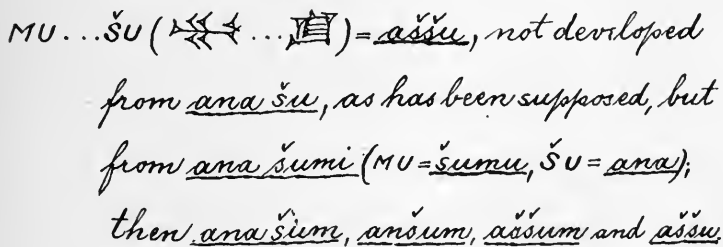 MU...ŠU (𒈬...𒋗) = aššu, not developed
from ana šu, as has been supposed, but
from ana šumi (MU = šumu, ŠU = ana);
then ana šum, anšum, aššum and aššu.